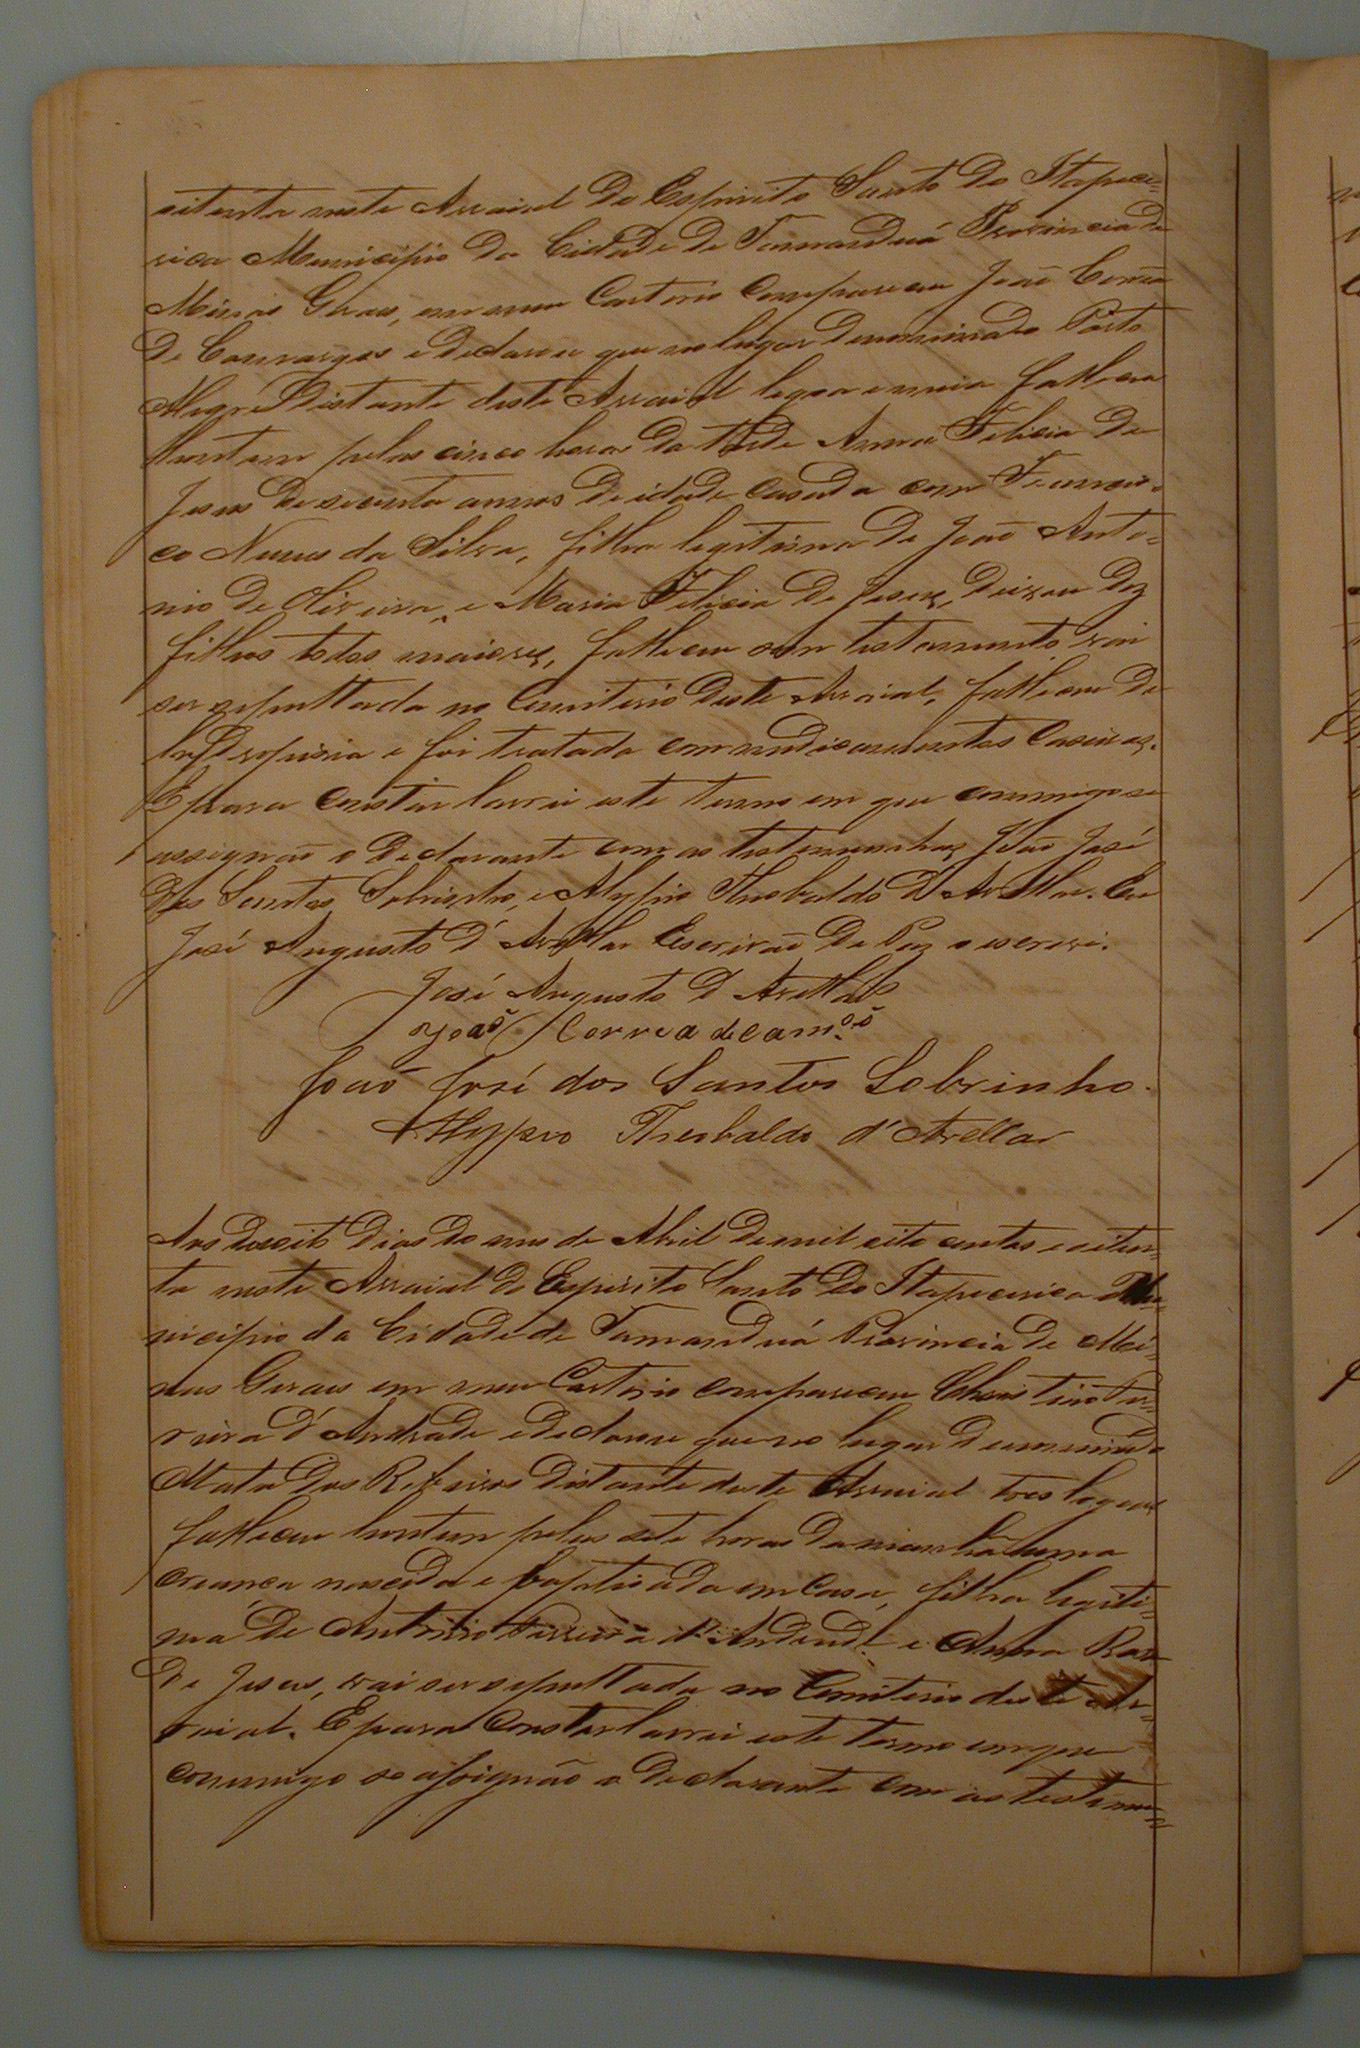 oitenta neste Arraial do Espirito Santo do Itapece-
rica Municipio da Cidade de Tamanduá Provincia de
Minas Geraes, em meu Cartorio compareceu João Corrêa
de Camargos e declarou que no lugar denominado Pôrto
Alegre distante deste Arraial legoa e meia falleceu
hontem pelas cinco horas da tarde Anna Felicia de
Jesus de secenta annos de idade casada com Francis-
co Nunes da Silva, filha legitima de João Anto-
nio de Oliveira, e Maria Felicia de Jesus, deixou dez
filhos todos maiores, falleceu sem testamento vai
ser sepultada no Cemiterio deste Arraial, falleceu de
hydropisia e foi tratada com medicamentos caseiros.
E para constar lavrei este termo em que commigo se
assignão o declarante com as testemunhas João José
dos Santos Sobrinho, e Alypio Theobaldo d'Avellar. Eu
José Augusto d'Avellar Escrivão de Paz o escrevi.
José Augusto d'Avellar
João Correa de Cam.os
João José dos Santos Sobrinho.
Alypio Theobaldo d'Avellar
Aos desoito dias do mes de Abril de mil oito centos e oiten-
ta neste Arraial do Espirito Santo do Itapecerica Mu-
nicipio da Cidade de Tamanduá Provincia de Mi-
nas Geraes em meu Cartorio compareceu Christino Fer-
reira d'Andrade e declarou que no lugar denominado
Mata dos distante deste Arraial tres legoas
falleceu hontem pelas sete horas da manhã huma
creança nascida e baptisada em casa, filha legiti-
ma de Antonio Ferreira d'Andrade e Anna Rosa
de Jesus, vai ser sepultada no Cemiterio deste Ar-
raial. E para constar lavrei este termo em que
commigo se assignão o declarante com as testemu-